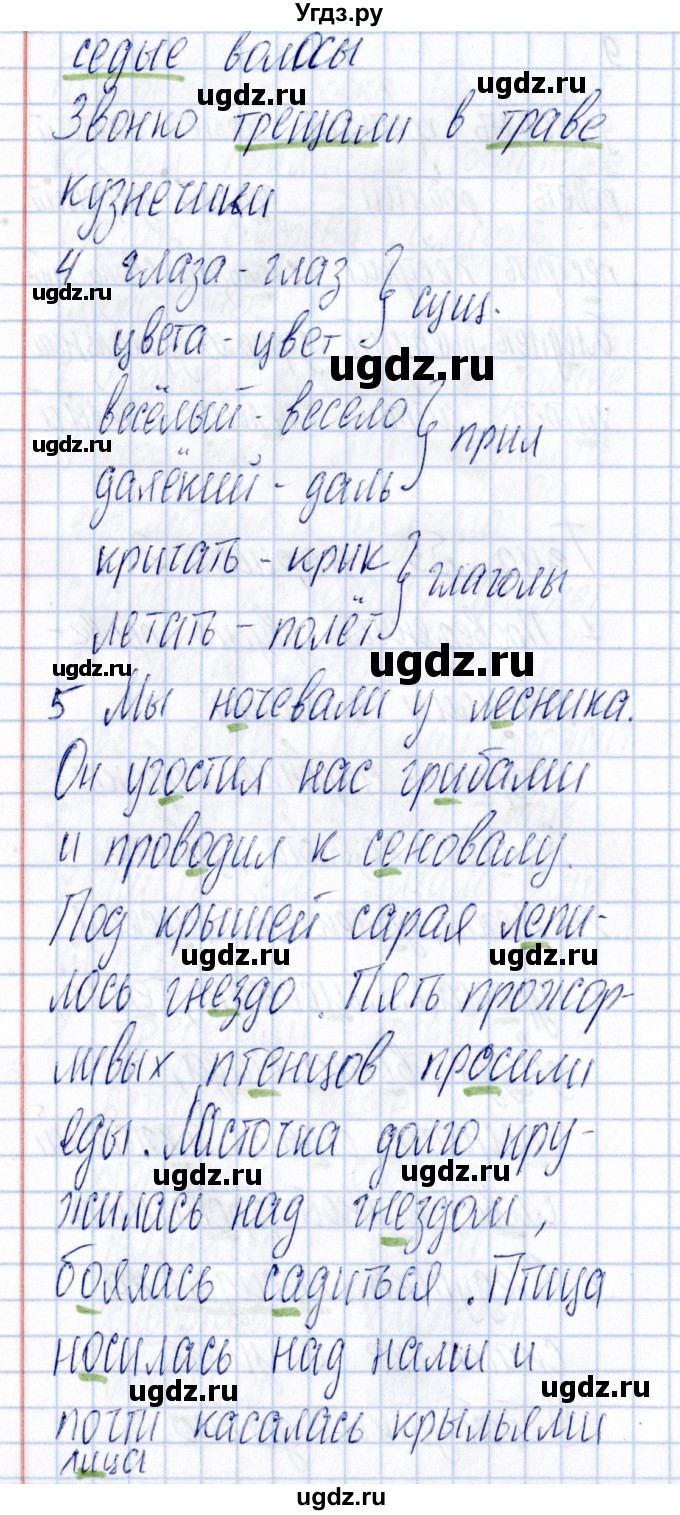 Угдз.ру
седые волосы
ugdz.ru ugdz.ru
Звонко трещали в траве
кузнечики
4 глаза - глаз } сущ.
ugdz.ru
цвета - цвет
ugdz.ru
весёлый - весело } прил
ugdz.ru
далёкий - даль
кричать - крик } глаголы
летать - полёт
ugdz.ru ugdz.ru
5 Мы ночевали у лесника.
Он угостил нас грибами
ugdz.ru ugdz.ru
и проводил к сеновалу.
Под крышей сарая лепи-
ugdz.ru ugdz.ru
лось гнездо. Пять прожор-
ливых птенцов просили
еды. Ласточка долго кру-
ugdz.ru ugdz.ru
жилась над гнездом,
боялась садиться. Птица
носилась над нами и
ugdz.ru ugdz.ru
почти касалась крыльями
лица
ugdz.ru